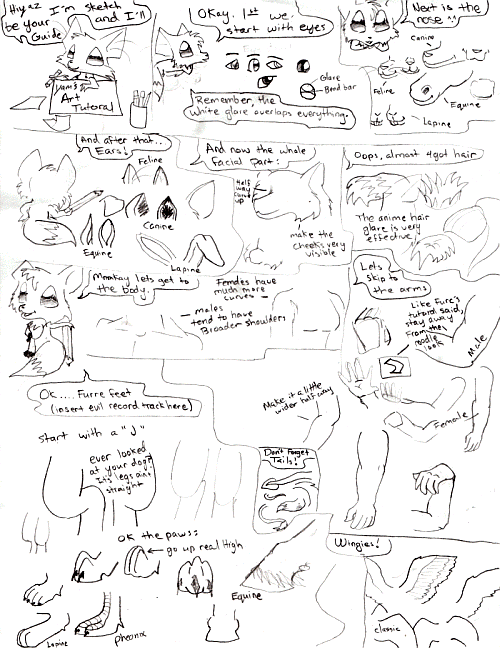 Hiyaz I'm sketch
and I'll
be your
Guide
Yam's
Art
Tutoral
OKay. 1st we
start with eyes
Glare
Bend bar
Remember, the
white glare overlaps everything.
Next is the
nose ^^
Canine
Feline
Equine
Lapine
And after that..
Ears!
Feline
Canine
Equine
Lapine
And now the whole
facial part:
Half
way
up
make the
cheeks very
visible
Oops, almost 4got hair
The anime hair
glare is very
effective!
Mmkay lets get to
the body.
Females have
much more
curves
males
tend to have
Broader shoulders
Lets
skip to
the arms
Like Fure's
tutoral said,
stay away
From the
noodle
look
Male
Female
Make it a little
wider half way
Ok.... Furre feet
(insert evil record track here)
start with a "J"
ever looked
at your dog?
It's legs aint
straight
Don't Forget
Tails!
OK the paws::
go up real High
Lapine
pheonix
Equine
Wingies!
classic